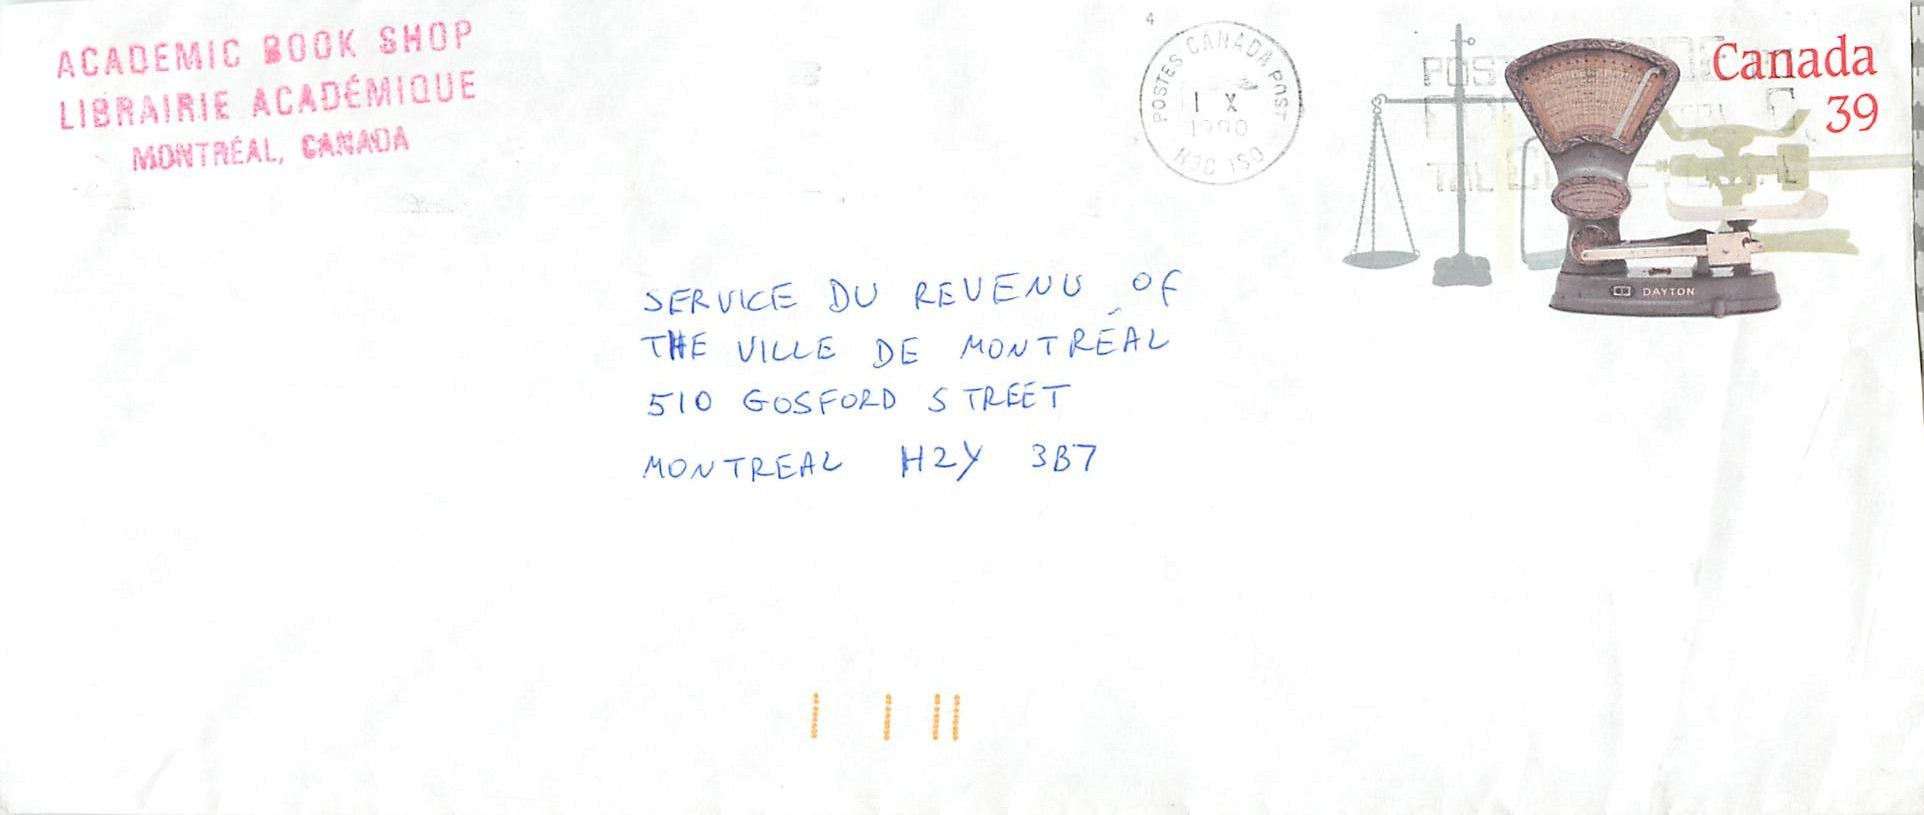 ACADEMIC BOOK SHOP
LIBRAIRIE ACADÉMIQUE
MONTRÉAL, CANADA
4
POSTES CANADA POST
1 X
1990
H3C 1S0
Canada
39
POST
DAYTON
SERVICE DU REVENU OF
THE VILLE DE MONTRÉAL
510 GOSFORD STREET
MONTREAL H2Y 3B7